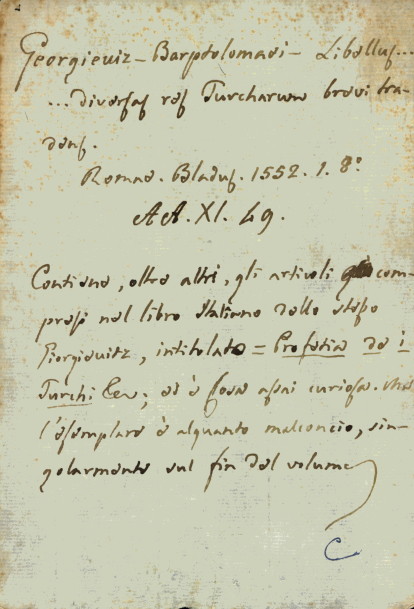 Georgieuiz - Barptolomaei - Libellus...
... diversas res Turcharum brevi tra-
dens.
Romae. Bladus. 1552. 1. 8°
AA. XI. 49.
Contiene, oltre altri, gli articoli com-
presi nel libro Italiano dello stesso
Giorgieuitz, intitolato = Profetia de i
Turchi &c; ed è cosa assai curiosa. Ma
l'esemplare è alquanto malconcio, sin-
golarmente sul fin del volume
C